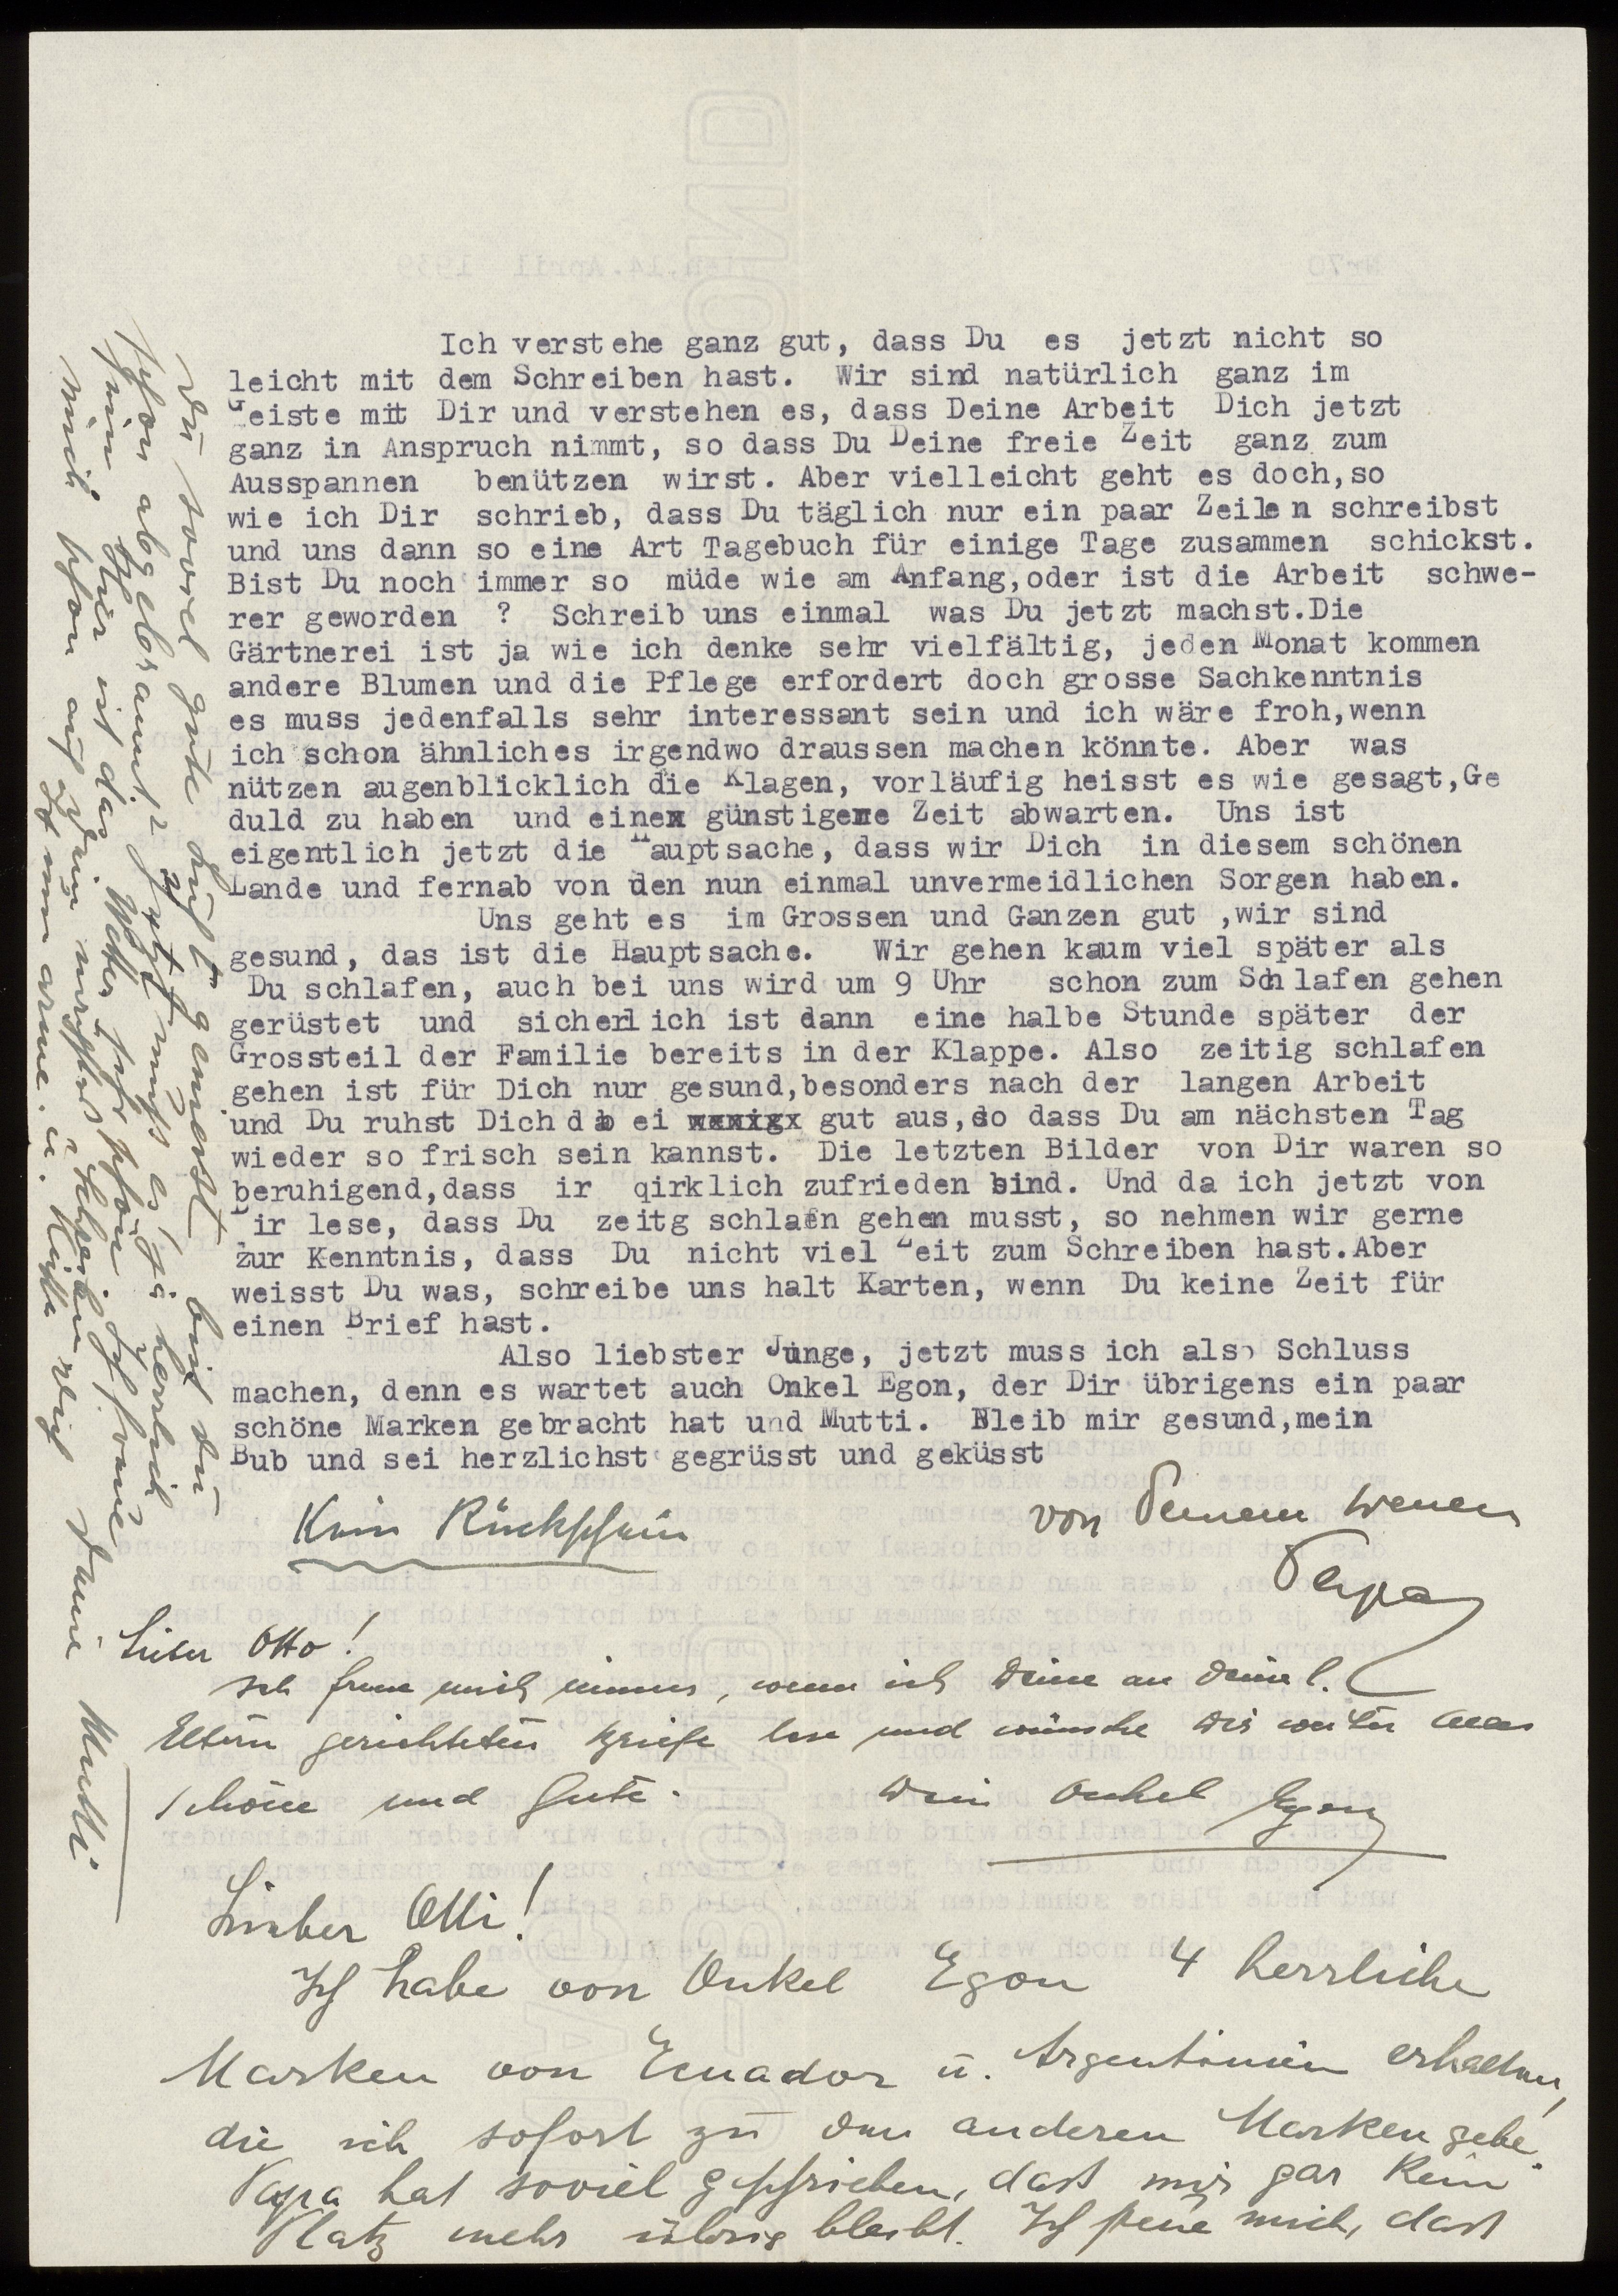 Ich verstehe ganz gut, dass Du es jetzt nicht so
leicht mit dem Schreiben hast. Wir sind natürlich ganz im
Geiste mit Dir und verstehen es, dass Deine Arbeit Dich jetzt
ganz in Anspruch nimmt, so dass Du Deine freie Zeit ganz zum
Ausspannen benützen wirst. Aber vielleicht geht es doch,so
wie ich Dir schrieb, dass Du täglich nur ein paar Zeilen schreibst
und uns dann so eine Art Tagebuch für einige Tage zusammen schickst.
Bist Du noch immer so müde wie am Anfang,oder ist die Arbeit schwe-
rer geworden ? Schreib uns einmal was Du jetzt machst.Die
Gärtnerei ist ja wie ich denke sehr vielfältig, jeden Monat kommen
andere Blumen und die Pflege erfordert doch grosse Sachkenntnis
es muss jedenfalls sehr interessant sein und ich wäre froh,wenn
ich schon ähnliches irgendwo draussen machen könnte. Aber was
nützen augenblicklich die Klagen, vorläufig heisst es wie gesagt,Ge
duld zu haben und einex günstigere Zeit abwarten. Uns ist
eigentlich jetzt die Hauptsache, dass wir Dich in diesem schönen
Lande und fernab von den nun einmal unvermeidlichen Sorgen haben.
Uns geht es im Grossen und Ganzen gut ,wir sind
gesund, das ist die Hauptsache. Wir gehen kaum viel später als
Du schlafen, auch bei uns wird um 9 Uhr schon zum Schlafen gehen
gerüstet und sicherlich ist dann eine halbe Stunde später der
Grossteil der Familie bereits in der Klappe. Also zeitig schlafen
gehen ist für Dich nur gesund,besonders nach der langen Arbeit
und Du ruhst Dich dabei gut aus,so dass Du am nächsten Tag
wieder so frisch sein kannst. Die letzten Bilder von Dir waren so
beruhigend,dass ir qirklich zufrieden sind. Und da ich jetzt von
Dir lese, dass Du zeitg schlafen gehen musst, so nehmen wir gerne
zur Kenntnis, dass Du nicht viel Zeit zum Schreiben hast.Aber
weisst Du was, schreibe uns halt Karten, wenn Du keine Zeit für
einen Brief hast.
Also liebster Junge, jetzt muss ich also Schluss
machen, denn es wartet auch Onkel Egon, der Dir übrigens ein paar
schöne Marken gebracht hat und Mutti. Bleib mir gesund,mein
Bub und sei herzlichst gegrüsst und geküsst
Kein Rückschein
von Deinem treuen
Papa
Lieber Otto!
Ich freue mich immer, wenn ich Deine an Deine l.
Eltern gerichteten Briefe lese und wünsche Dir weiter alles
Schöne und Gute.
Dein Onkel Egon
Lieber Otti!
Ich habe von Onkel Egon 4 herrliche
Marken von Ecuador u. Argentinien erhalten,
die ich sofort zu den anderen Marken gebe.
Papa hat soviel geschrieben, dass mir gar kein
Platz mehr übrig bleibt. Ich freue mich, dass
Du soviel gute Luft genießt, bist Du
schon abgebrannt? Jetzt muß es ja herrlich
sein. Hier ist das Wetter sehr schön. Ich freue
mich schon auf Dein nächstes Schreiben
Ich umarme u. küsse Dich Deine Mutti